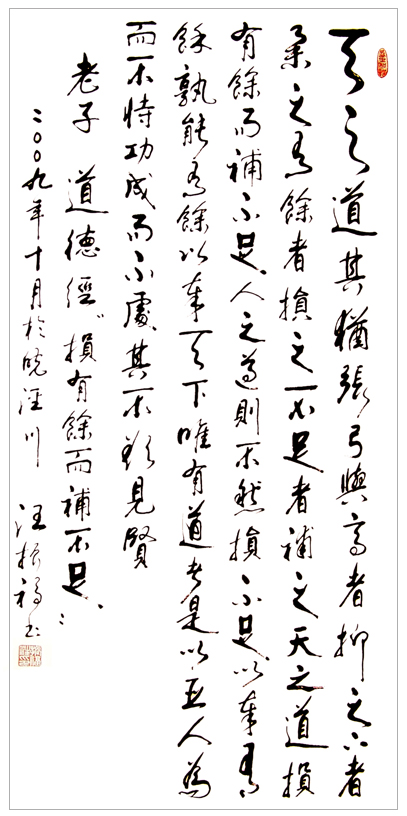 天之道其猶張弓與高者抑之下者
舉之有餘者損之不足者補之天之道損
有餘而補不足人之道則不然損不足以奉有
餘孰能有餘以奉天下唯有道者是以聖人為
而不恃功成而不處其不欲見賢
老子 道德經“損有餘而補不足”
二〇〇九年十月於皖涇川 汪振福书